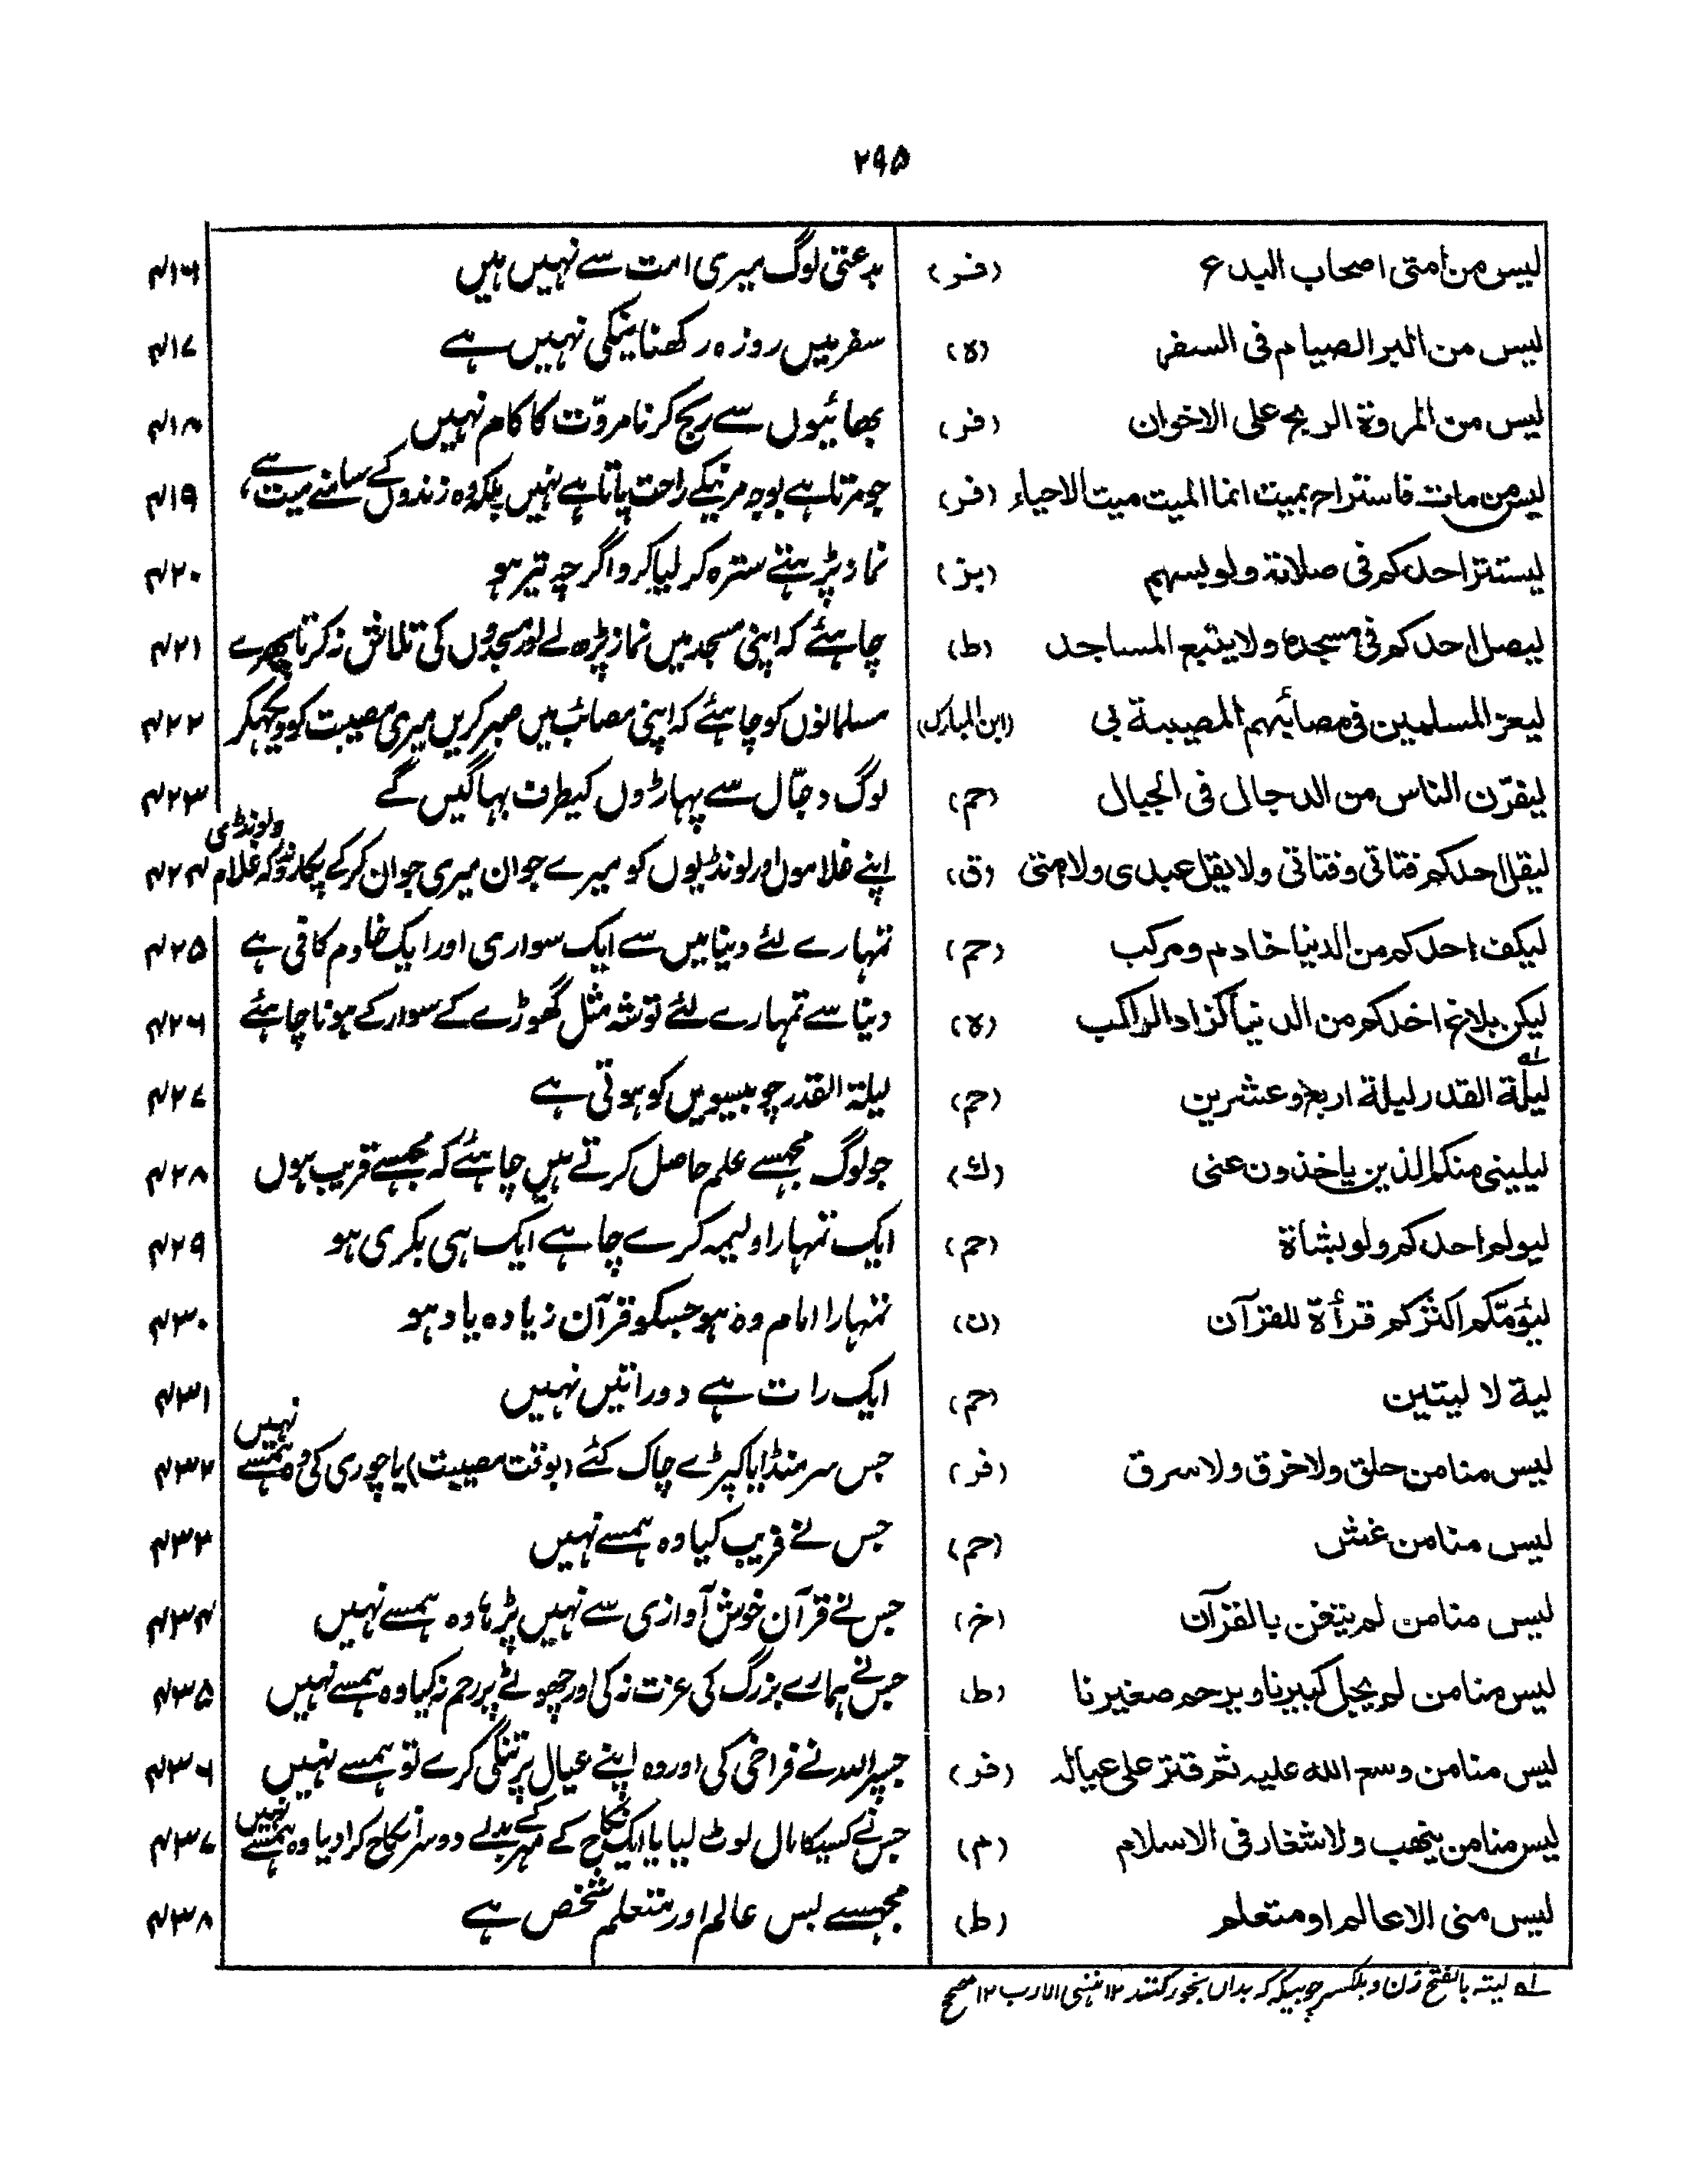 ۲۹۵
لیس من امتی اصحاب البدع (فر) بدعتی لوگ میری امت سے نہیں ہیں ۴۱۶
لیس من البر الصیام فی السفر (ہ) سفر میں روزہ رکھنا نیکی نہیں ہے ۴۱۷
لیس من المروۃ الربح علی الاخوان (فر) بھائیوں سے ربح کرنا مروّت کا کام نہیں ۴۱۸
لیس من مات فاستراح بمیت انما المیت میت الاحیاء (فر) جو مرتا ہے بوجہ مرنیکے راحت پاتا ہے نہیں بلکہ وہ زندوں کے سامنے میت ہے، ۴۱۹
لیستتر احدکم فی صلاتہ ولو بسہم (بز) نماز پڑہتے سترہ کر لیا کرو اگرچہ تیر ہو ۴۲۰
لیصل احدکم فی مسجدہ ولا یتبع المساجد (ط) چاہئے کہ اپنی مسجد میں نماز پڑہ لے اور مسجدوں کی تلاش نہ کرتا پھرے ۴۲۱
لیعز المسلمین فی مصائبہم المصیبۃ بی (ابن المبارک) مسلمانوں کو چاہئے کہ اپنی مصائب میں صبر کریں میری مصیبت کو دیکھکر ۴۲۲
لیفرّن الناس من الدجال فی الجبال (حم) لوگ دجّال سے پہاڑوں کیطرف بہاگیں گے ۴۲۳
لیقل احدکم فتاتی وفتاتی ولا یقل عبدی ولا امتی (ق) اپنے غلاموں اور لونڈیوں کو میرے جوان میری جوان کرکے پکارو نہ کہ غلام ولونڈی ۴۲۴
لیکف احدکم من الدنیا خادم ومرکب (حم) تمہارے لئے دنیا میں سے ایک سواری اور ایک خادم کافی ہے ۴۲۵
لیکن بلاغ احدکم من الدنیا کزاد الراکب (ہ) دنیا سے تمہارے لئے توشہ مثل گھوڑے کے سوار کے ہونا چاہئے ۴۲۶
لیلۃ القدر لیلۃ اربع وعشرین (حم) لیلۃ القدر چوبیسویں کو ہوتی ہے ۴۲۷
لیلینی منکم الذین یاخذون عنی (ک) جو لوگ مجہسے علم حاصل کرتے ہیں چاہئے کہ مجہسے قریب ہوں ۴۲۸
لیولم احدکم ولو بشاۃ (حم) ایک تمہارا ولیمہ کرے چاہے ایک ہی بکری ہو ۴۲۹
لیؤمّکم اکثرکم قرأۃ للقرآن (ن) تمہارا امام وہ ہو جسکو قرآن زیادہ یاد ہو ۴۳۰
لیۃ لا لیتین (حم) ایک رات ہے دوراتیں نہیں ۴۳۱
لیس منا من حلق ولا خرق ولا سرق (فر) جس سر منڈایا کپڑے چاک کئے (بوقت مصیبت) یا چوری کی وہ ہمسے نہیں ۴۳۲
لیس منا من غش (حم) جس نے فریب کیا وہ ہمسے نہیں ۴۳۳
لیس منا من لم یتغن بالقرآن (خ) جس نے قرآن خوش آوازی سے نہیں پڑہا وہ ہمسے نہیں ۴۳۴
لیس منا من لم یجل کبیرنا و یرحم صغیرنا (ط) جس نے ہمارے بزرگ کی عزت نہ کی اور چھوٹے پر رحم نہ کیا وہ ہمسے نہیں ۴۳۵
لیس منا من وسع اللہ علیہ ثم قتر علی عیالہ (فر) جسپر اللہ نے فراخی کی اور وہ اپنے عیال پر تنگی کرے تو ہمسے نہیں ۴۳۶
لیس منا من ینھب ولا شغار فی الاسلام (م) جس نے کسیکا مال لوٹ لیا یا ایک نکاح کے مہر کے بدلے دوسرا نکاح کرا دیا وہ ہمسے نہیں ۴۳۷
لیس منی الا عالم او متعلم (ط) مجہسے بس عالم اور متعلم شخص ہے ۴۳۸
لہ لیتہ بالفتح زن و بلکسر چوبیکہ کہ بداں بخور کنند ۱۲ منتہی الارب ۱۲ مصحح